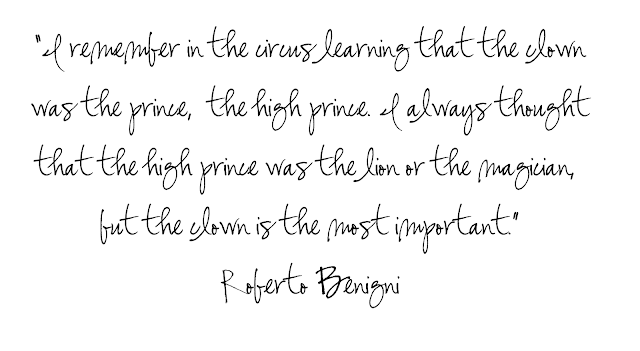 "I remember in the circus learning that the clown
was the prince, the high prince. I always thought
that the high prince was the lion or the magician,
but the clown is the most important."
Roberto Benigni